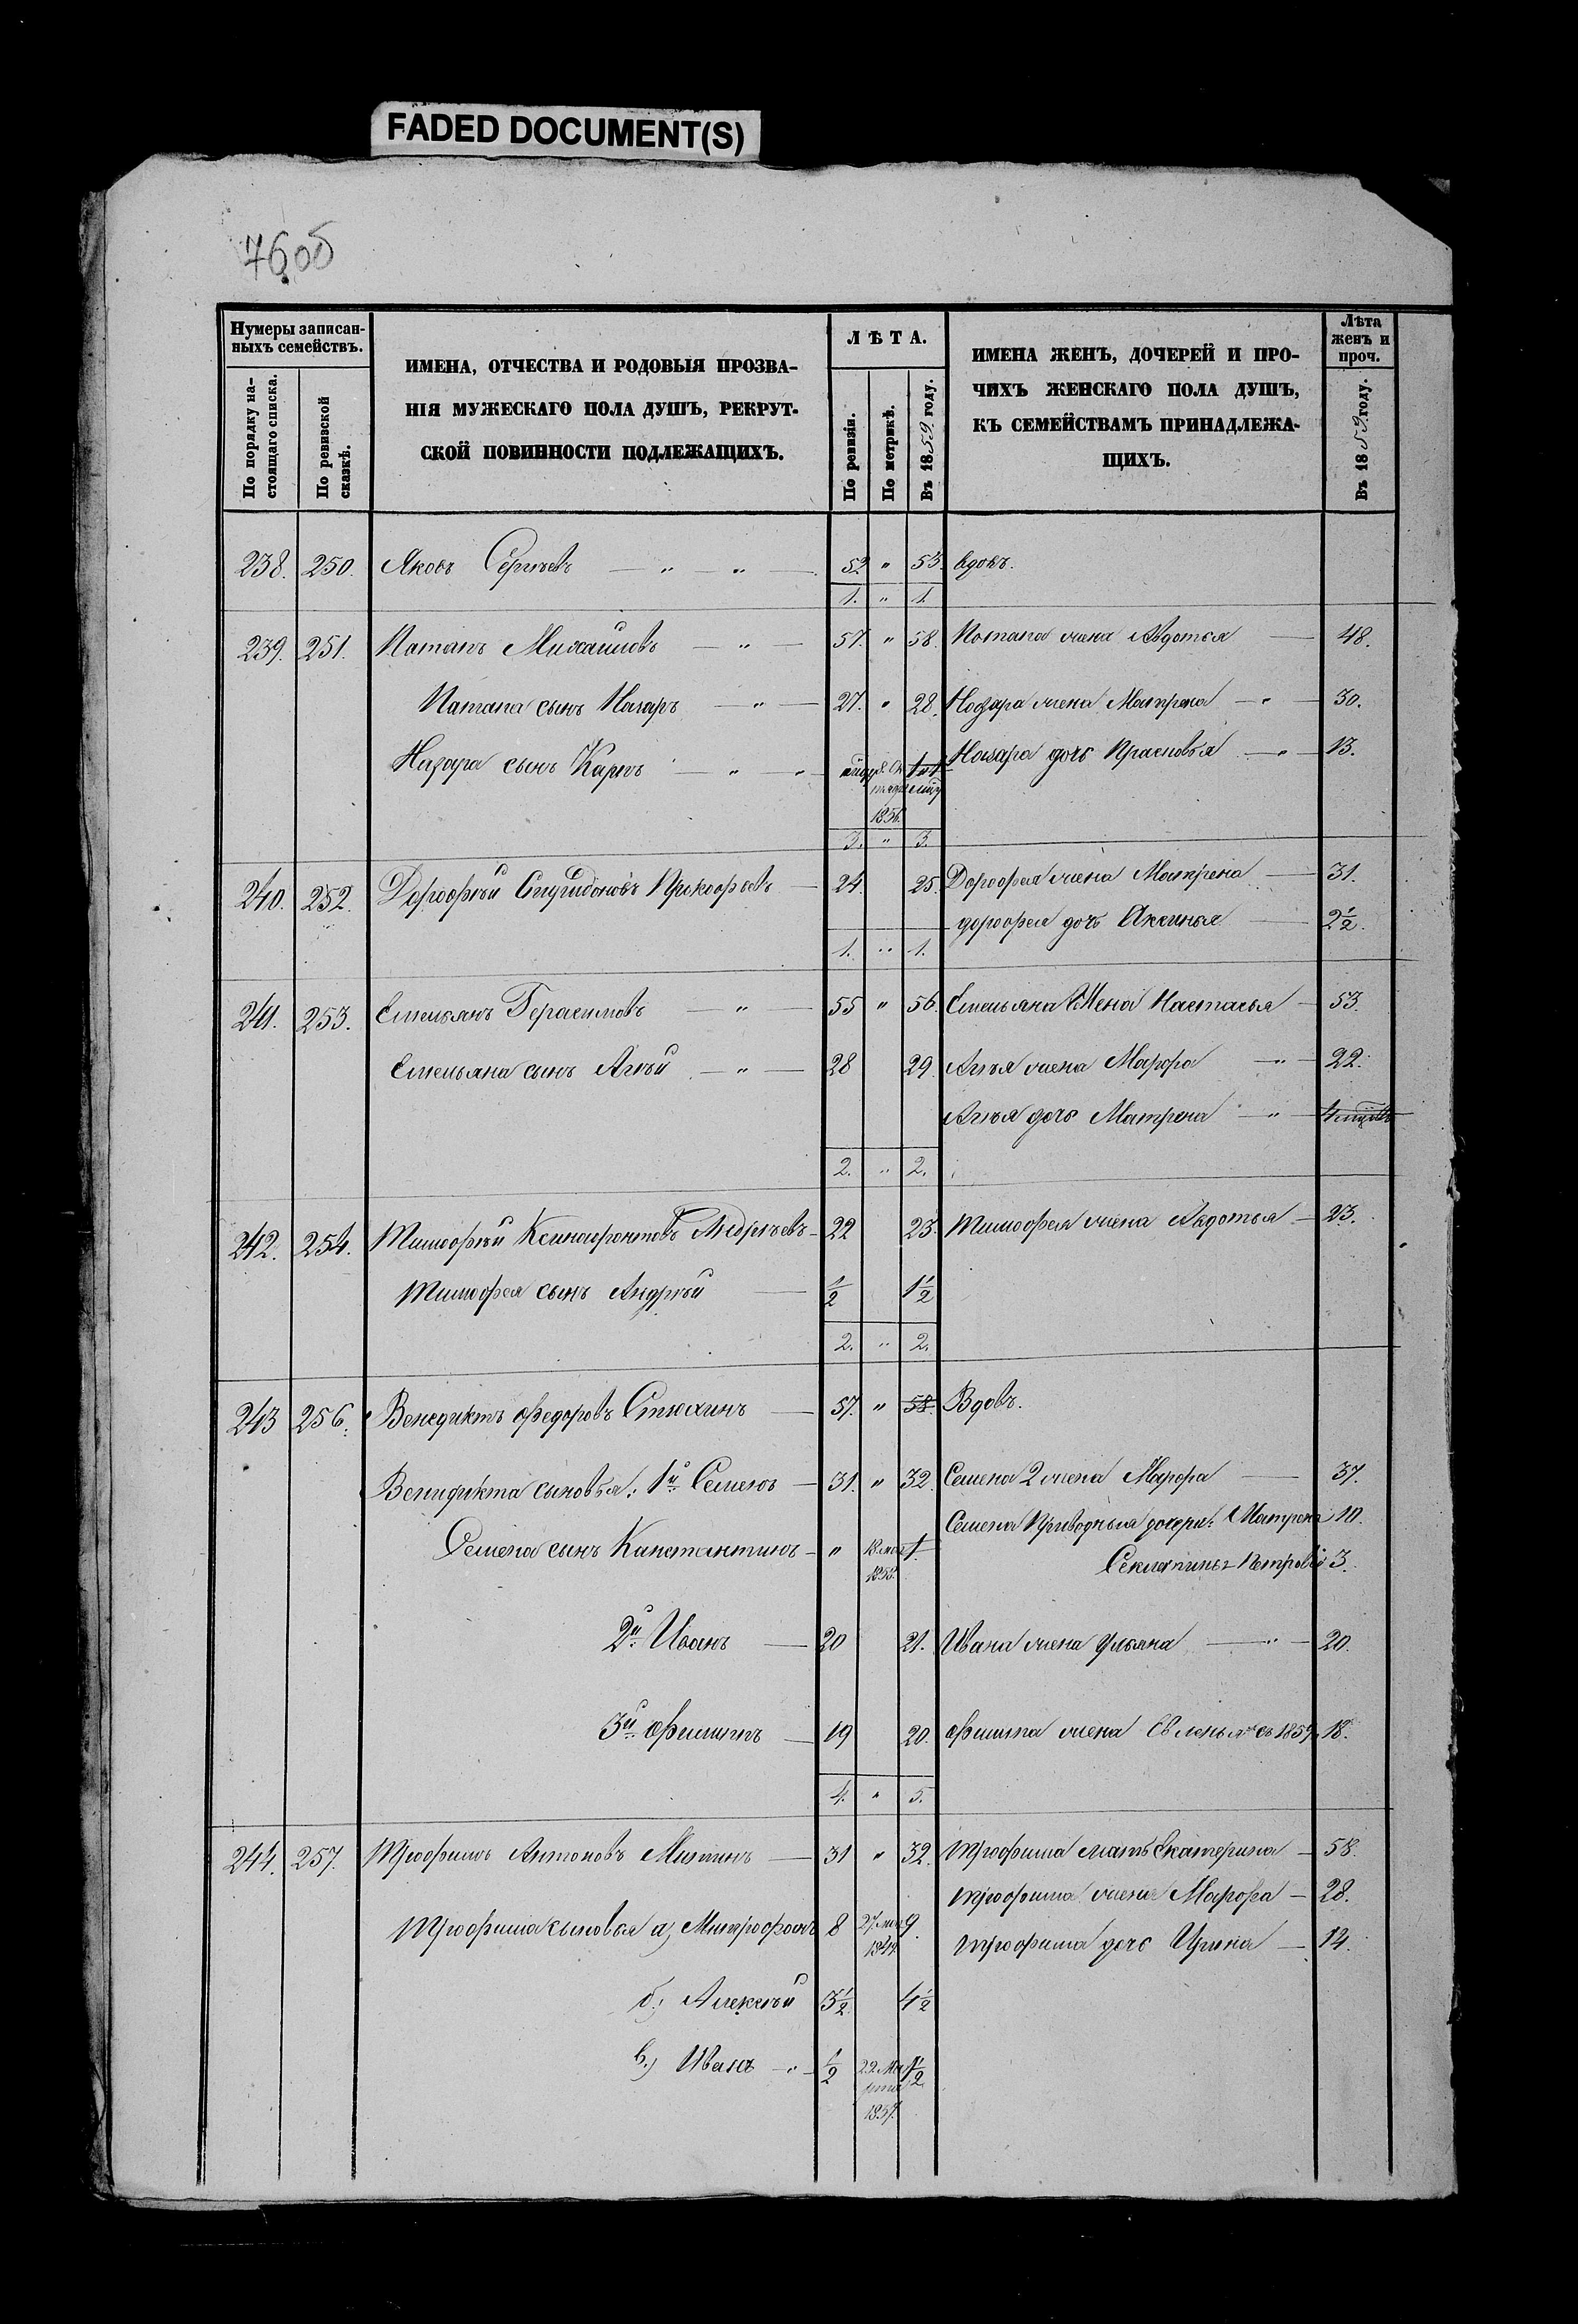 FADED DOCUMENT(S)
Нумеры записан-
ныхъ семействъ.
По порядку на-
стоящаго списка.
По ревизской
сказкѣ.
ИМЕНА, ОТЧЕСТВА И РОДОВЫЯ ПРОЗВА-
НІЯ МУЖЕСКАГО ПОЛА ДУШЪ, РЕКРУТ-
СКОЙ ПОВИННОСТИ ПОДЛЕЖАЩИХЪ.
ЛѢТА.
По ревизіи.
По метрикѣ.
Въ 1859 году.
ИМЕНА ЖЕНЪ, ДОЧЕРЕЙ И ПРО-
ЧИХЪ ЖЕНСКАГО ПОЛА ДУШЪ,
КЪ СЕМЕЙСТВАМЪ ПРИНАДЛЕЖА-
ЩИХЪ.
Лѣта
женъ и
проч.
Въ 1859 году.
238. 250. Яковъ Сергѣевъ — " — " — 52 " 53. вдовъ.
1. " 1.
239. 251. Патапъ Михайловъ — " — 57. " 58. Потапа жена Авдотья — 48.
Патапа сынъ Назаръ — " — 27. " 28. Назара жена Матрена — " — 30.
Назара сынъ Карпъ — " — " — Назара дочь Прасковья — " — 13.
1856.
3. " 3.
240. 252. Дорофѣй Спиридоновъ Прокофьевъ — 24. 25. Дорофея жена Матрена — 31.
дорофея дочь Аксинья — 2½.
1. " 1.
241. 253. Емельянъ Герасимовъ — " — 55 " 56. Емельяна Жена Настасья — 53.
Емельяна сынъ Агѣй — " — 28 29. Агѣя жена Марфа — " — 22.
Агѣя дочь Матрена — " —
2. " 2.
242. 254. Тимофѣй Ксенофонтовъ Андрѣевъ — 22 23. Тимофея жена Авдотья — 23.
Тимофея сынъ Андрѣй — ½ 1½
2. " 2.
243 256. Венедиктъ Федоровъ Стюхинъ — 57. " 58. Вдовъ.
Венидикта сыновья: 1й Семенъ — 31. " 32. Семена 2 жена Марфа — 37.
Семена Приводныя дочери: Матрена 10.
Семена сынъ Канстантинъ — " 1.
3.
2й Иванъ — 20 21. Ивана жена Ульяна — " — 20.
3й Филиппъ — 19 20. Филиппа жена съ 1859 18.
4. " 5.
244. 257. Трофимъ Антоновъ Митинъ — 31 " 32. Трофима мать Екатерина — 58.
Трофима жена Марфа — 28.
Трофима сыновья а) Митрофанъ 8 27. 1849. 9.
Трофима дочь Ирина — 14.
б) Алексѣй 3½ 4½
в) Иванъ — " — ½ 22 Марта 1857. 1½